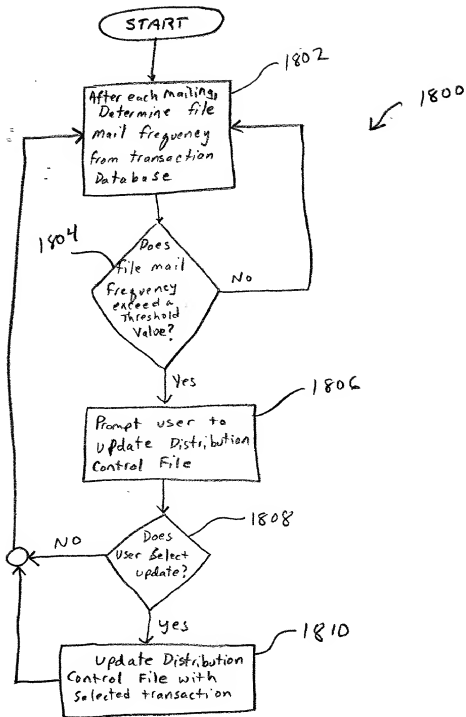 START
1802
1800
After each Mailing,
Determine file
mail frequency
from transaction
Database
1804
Does
file mail
frequency
exceed a
Threshold
Value?
NO
Yes
1806
Prompt user to
update Distribution
Control File
1808
Does
user select
update?
NO
yes
1810
update Distribution
Control File with
selected transaction